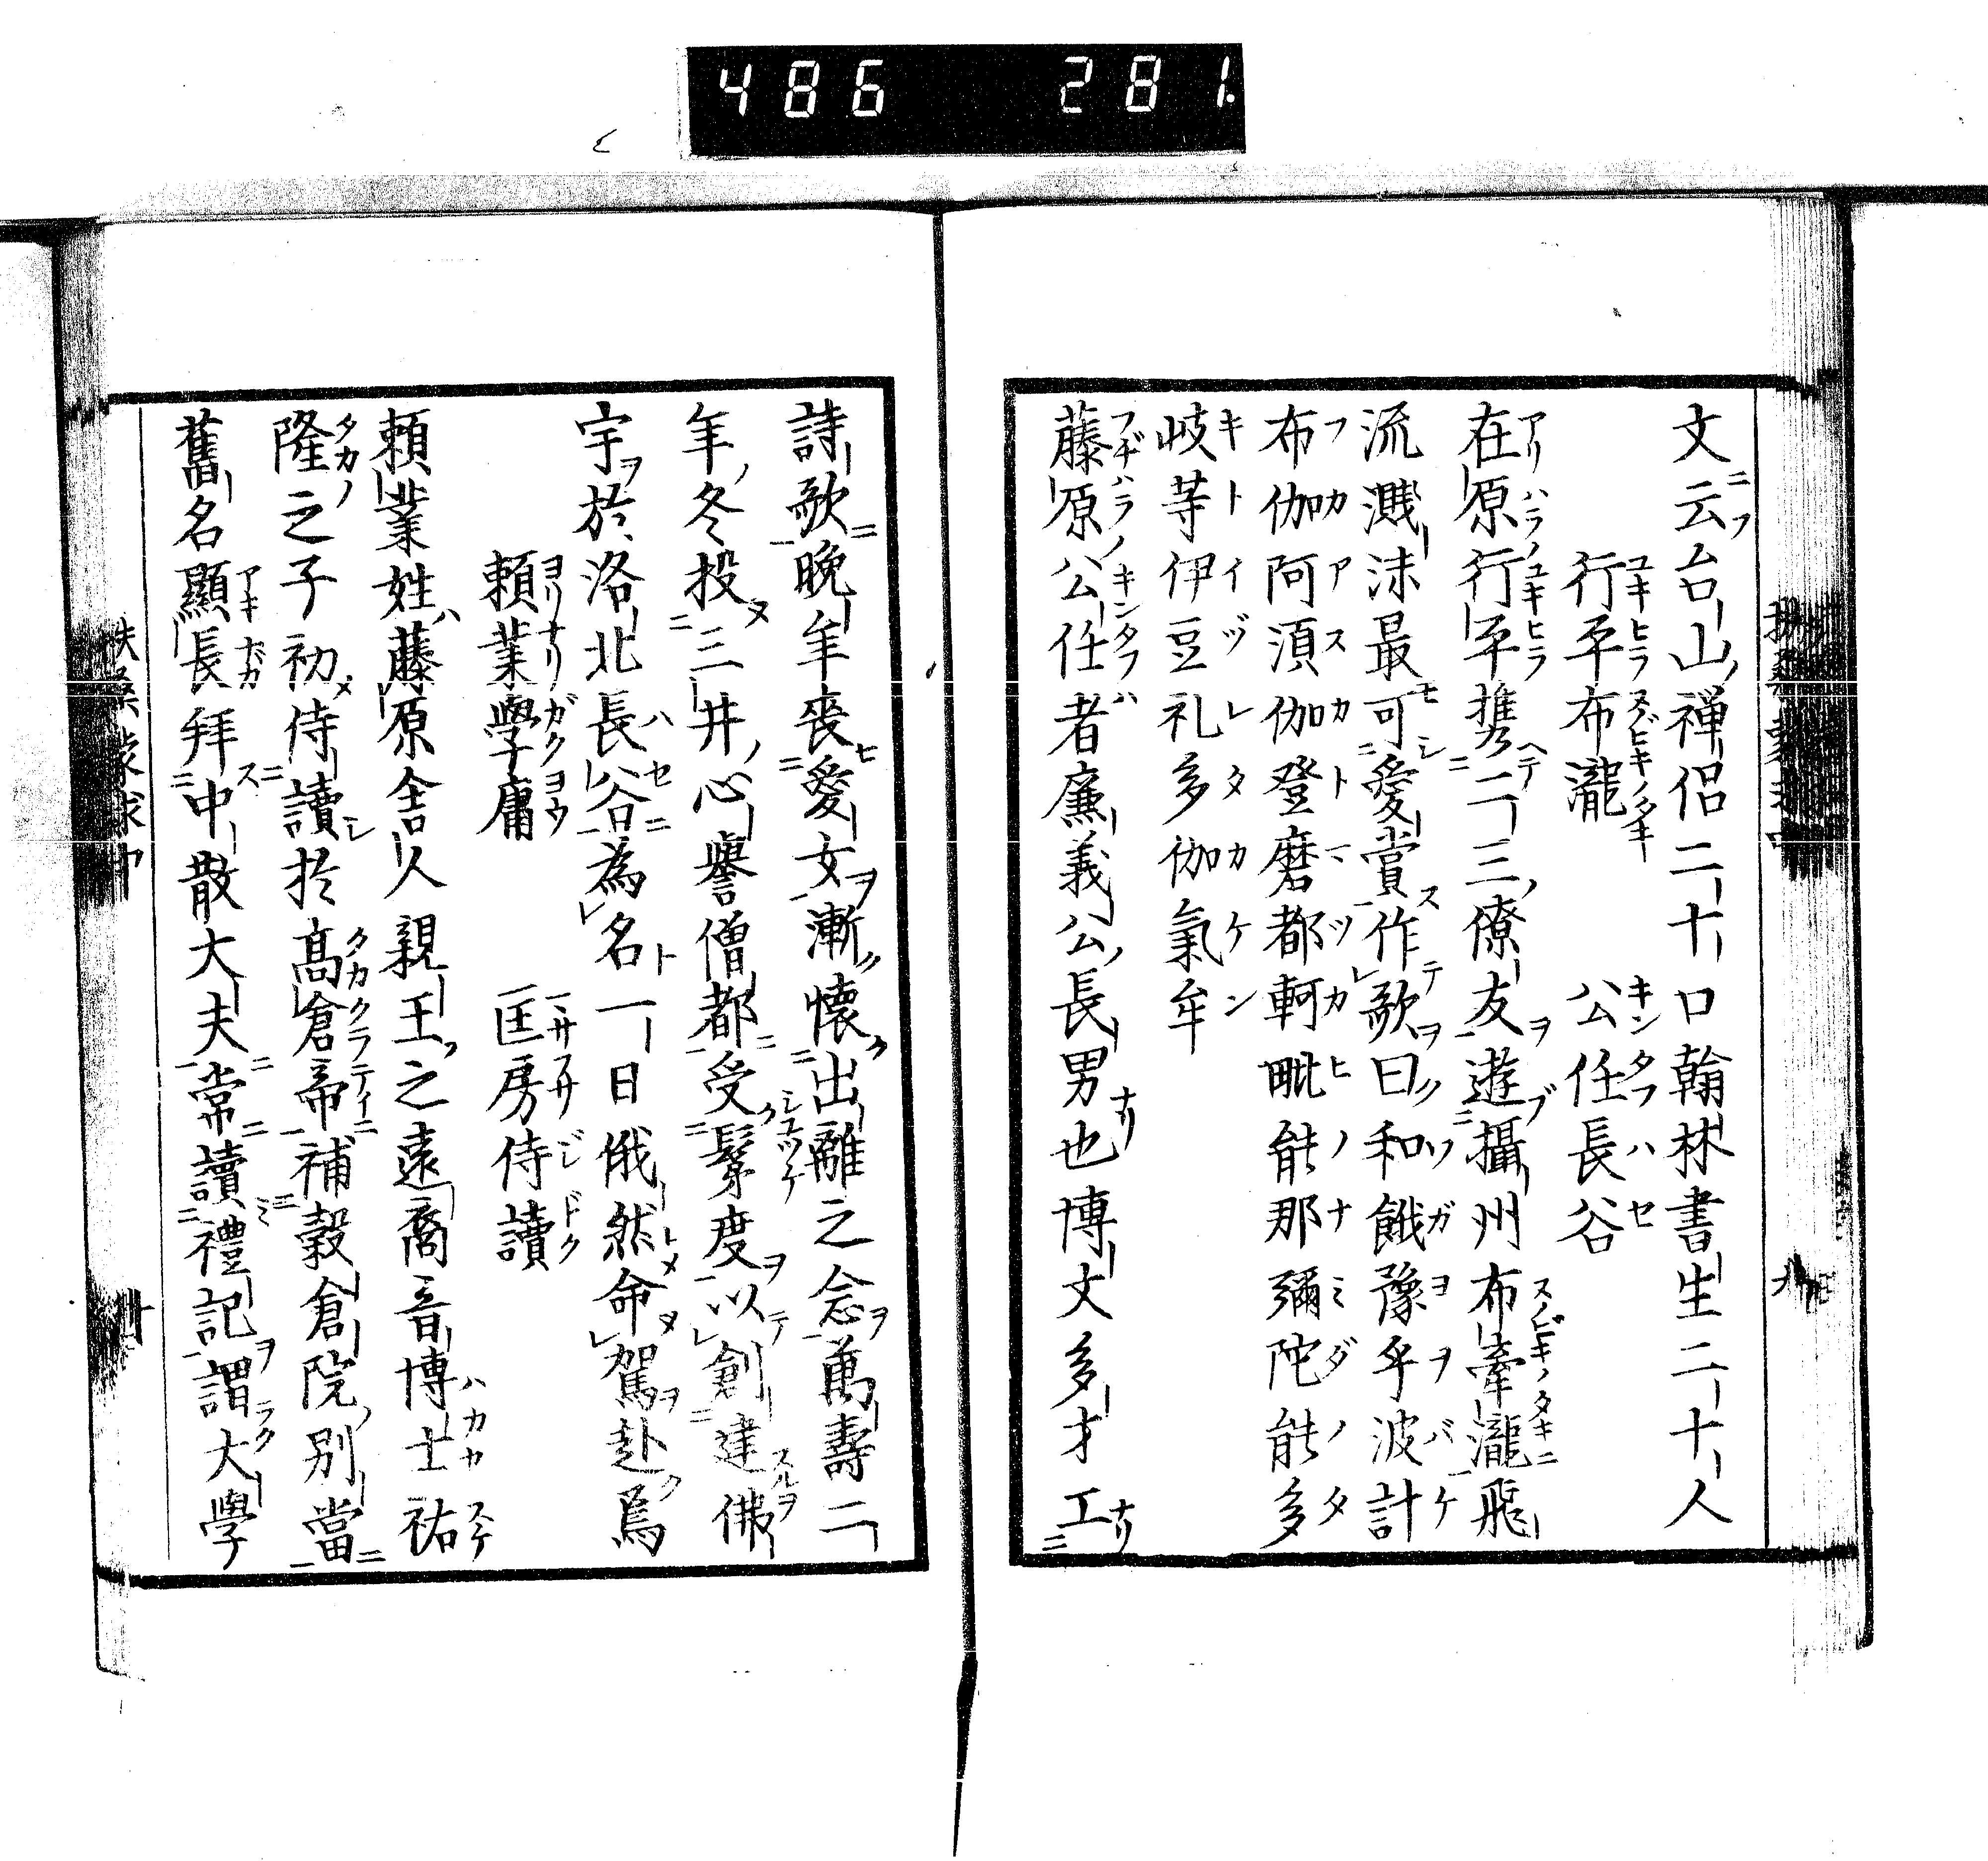 486 281
文云台山禅侶二十口翰林書生二十人
行平布瀧 公任長谷
在原行平携二三僚友遊攝州布牽瀧飛
流濺沫最可愛賞作歌曰和餓豫乎波計
布伽阿湏伽登磨都軻毗能那彌陀能多
岐等伊豆礼多伽氣牟
藤原公任者廉義公長男也博文多才工
詩歌晩年喪愛女漸懷出離之念萬壽二
年冬投三井心譽僧都受髮度以創建佛
宇於洛北長谷為名一日俄然命駕赴焉
頼業學庸 匡房侍讀
頼業姓藤原舎人親王之遠裔音博士祐
隆之子初侍讀於髙倉帝補穀倉院別當
舊名顯長拜中散大夫常讀禮記謂大學
扶桑蒙求中